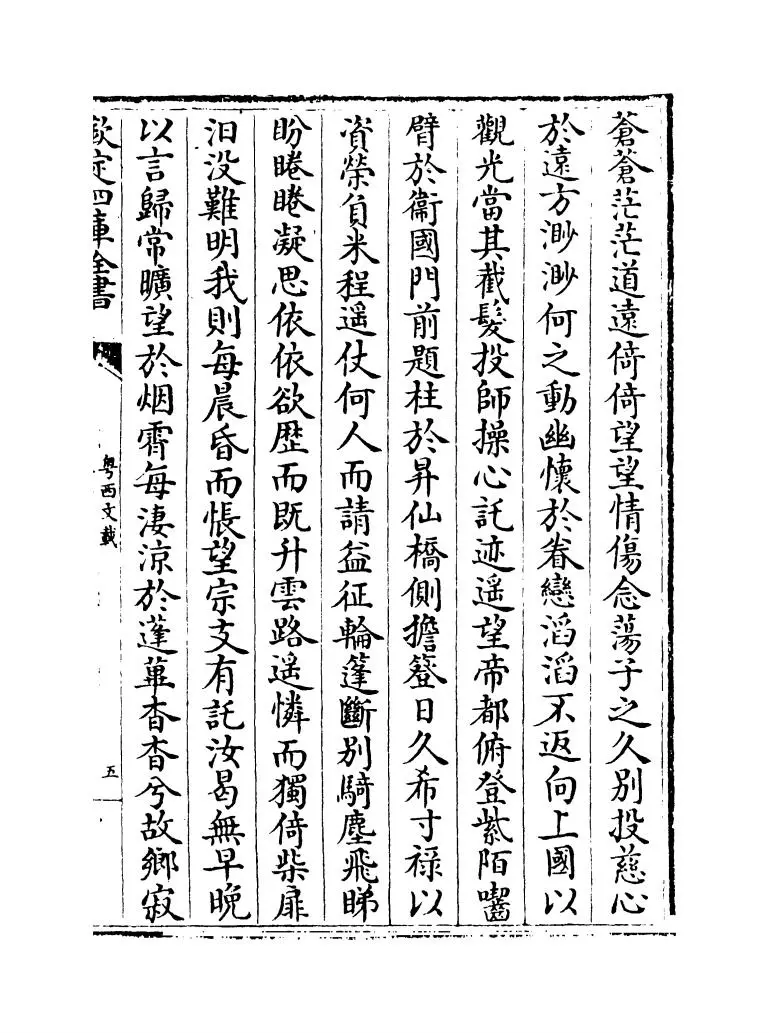 蒼蒼茫茫道遠倚倚望望情傷念蕩子之久别投慈心
於遠方渺渺何之動幽懷於眷戀滔滔不返向上國以
觀光當其截髮投師操心託迹遥望帝都俯登紫陌囓
臂於衞國門前題柱於昇仙橋側擔簦日久希寸祿以
資榮負米程遥仗何人而請益征輪篷斷别騎塵飛睇
盼睠睠凝思依依欲歴而既升雲路遥憐而獨倚柴扉
汨没難明我則每晨昏而悵望宗支有託汝曷無早晩
以言歸常曠望於烟霄每淒涼於蓬蓽杳杳兮故鄉寂
欽定四庫全書
粤西文載
五